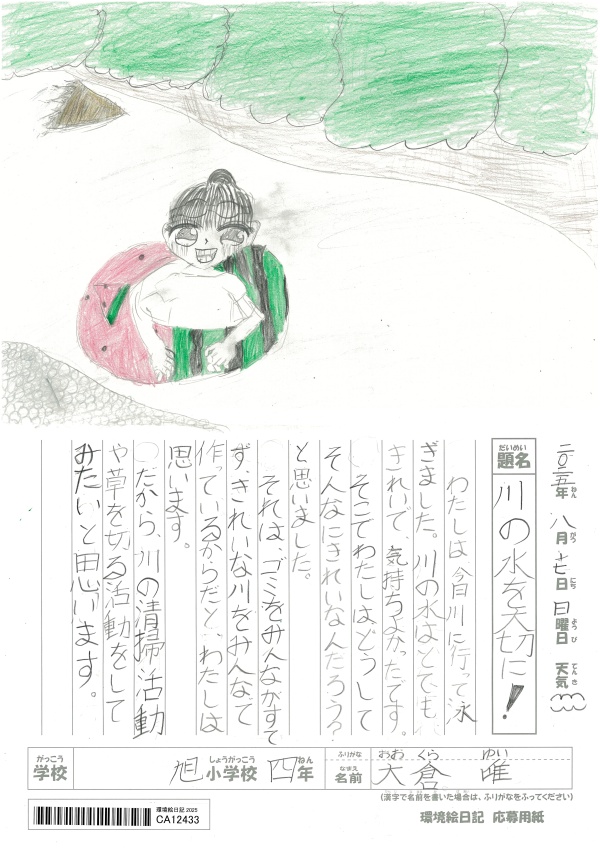 二〇二五年ねん 八月がつ 十七日にち 日曜日ようび 天気てんき
題名だいめい 川の水を大切に!
わたしは今日川に行って泳
ぎました。川の水はとても、
きれいで、気持ちよかったです。
そこでわたしはどうして
そんなにきれいなんだろう?
と思いました。
それは、ゴミをみんながすて
ず、きれいな川をみんなで
作っているからだと、わたしは
思います。
だから、川の清掃活動
や草を切る活動をして
みたいと思います。
学校がっこう 旭小学校しょうがっこう 四年ねん ふりがな おおくら ゆい
名前なまえ 大倉 唯
(漢字で名前を書いた場合は、ふりがなをふってください)
環境絵日記 2025
CA12433
環境絵日記 応募用紙